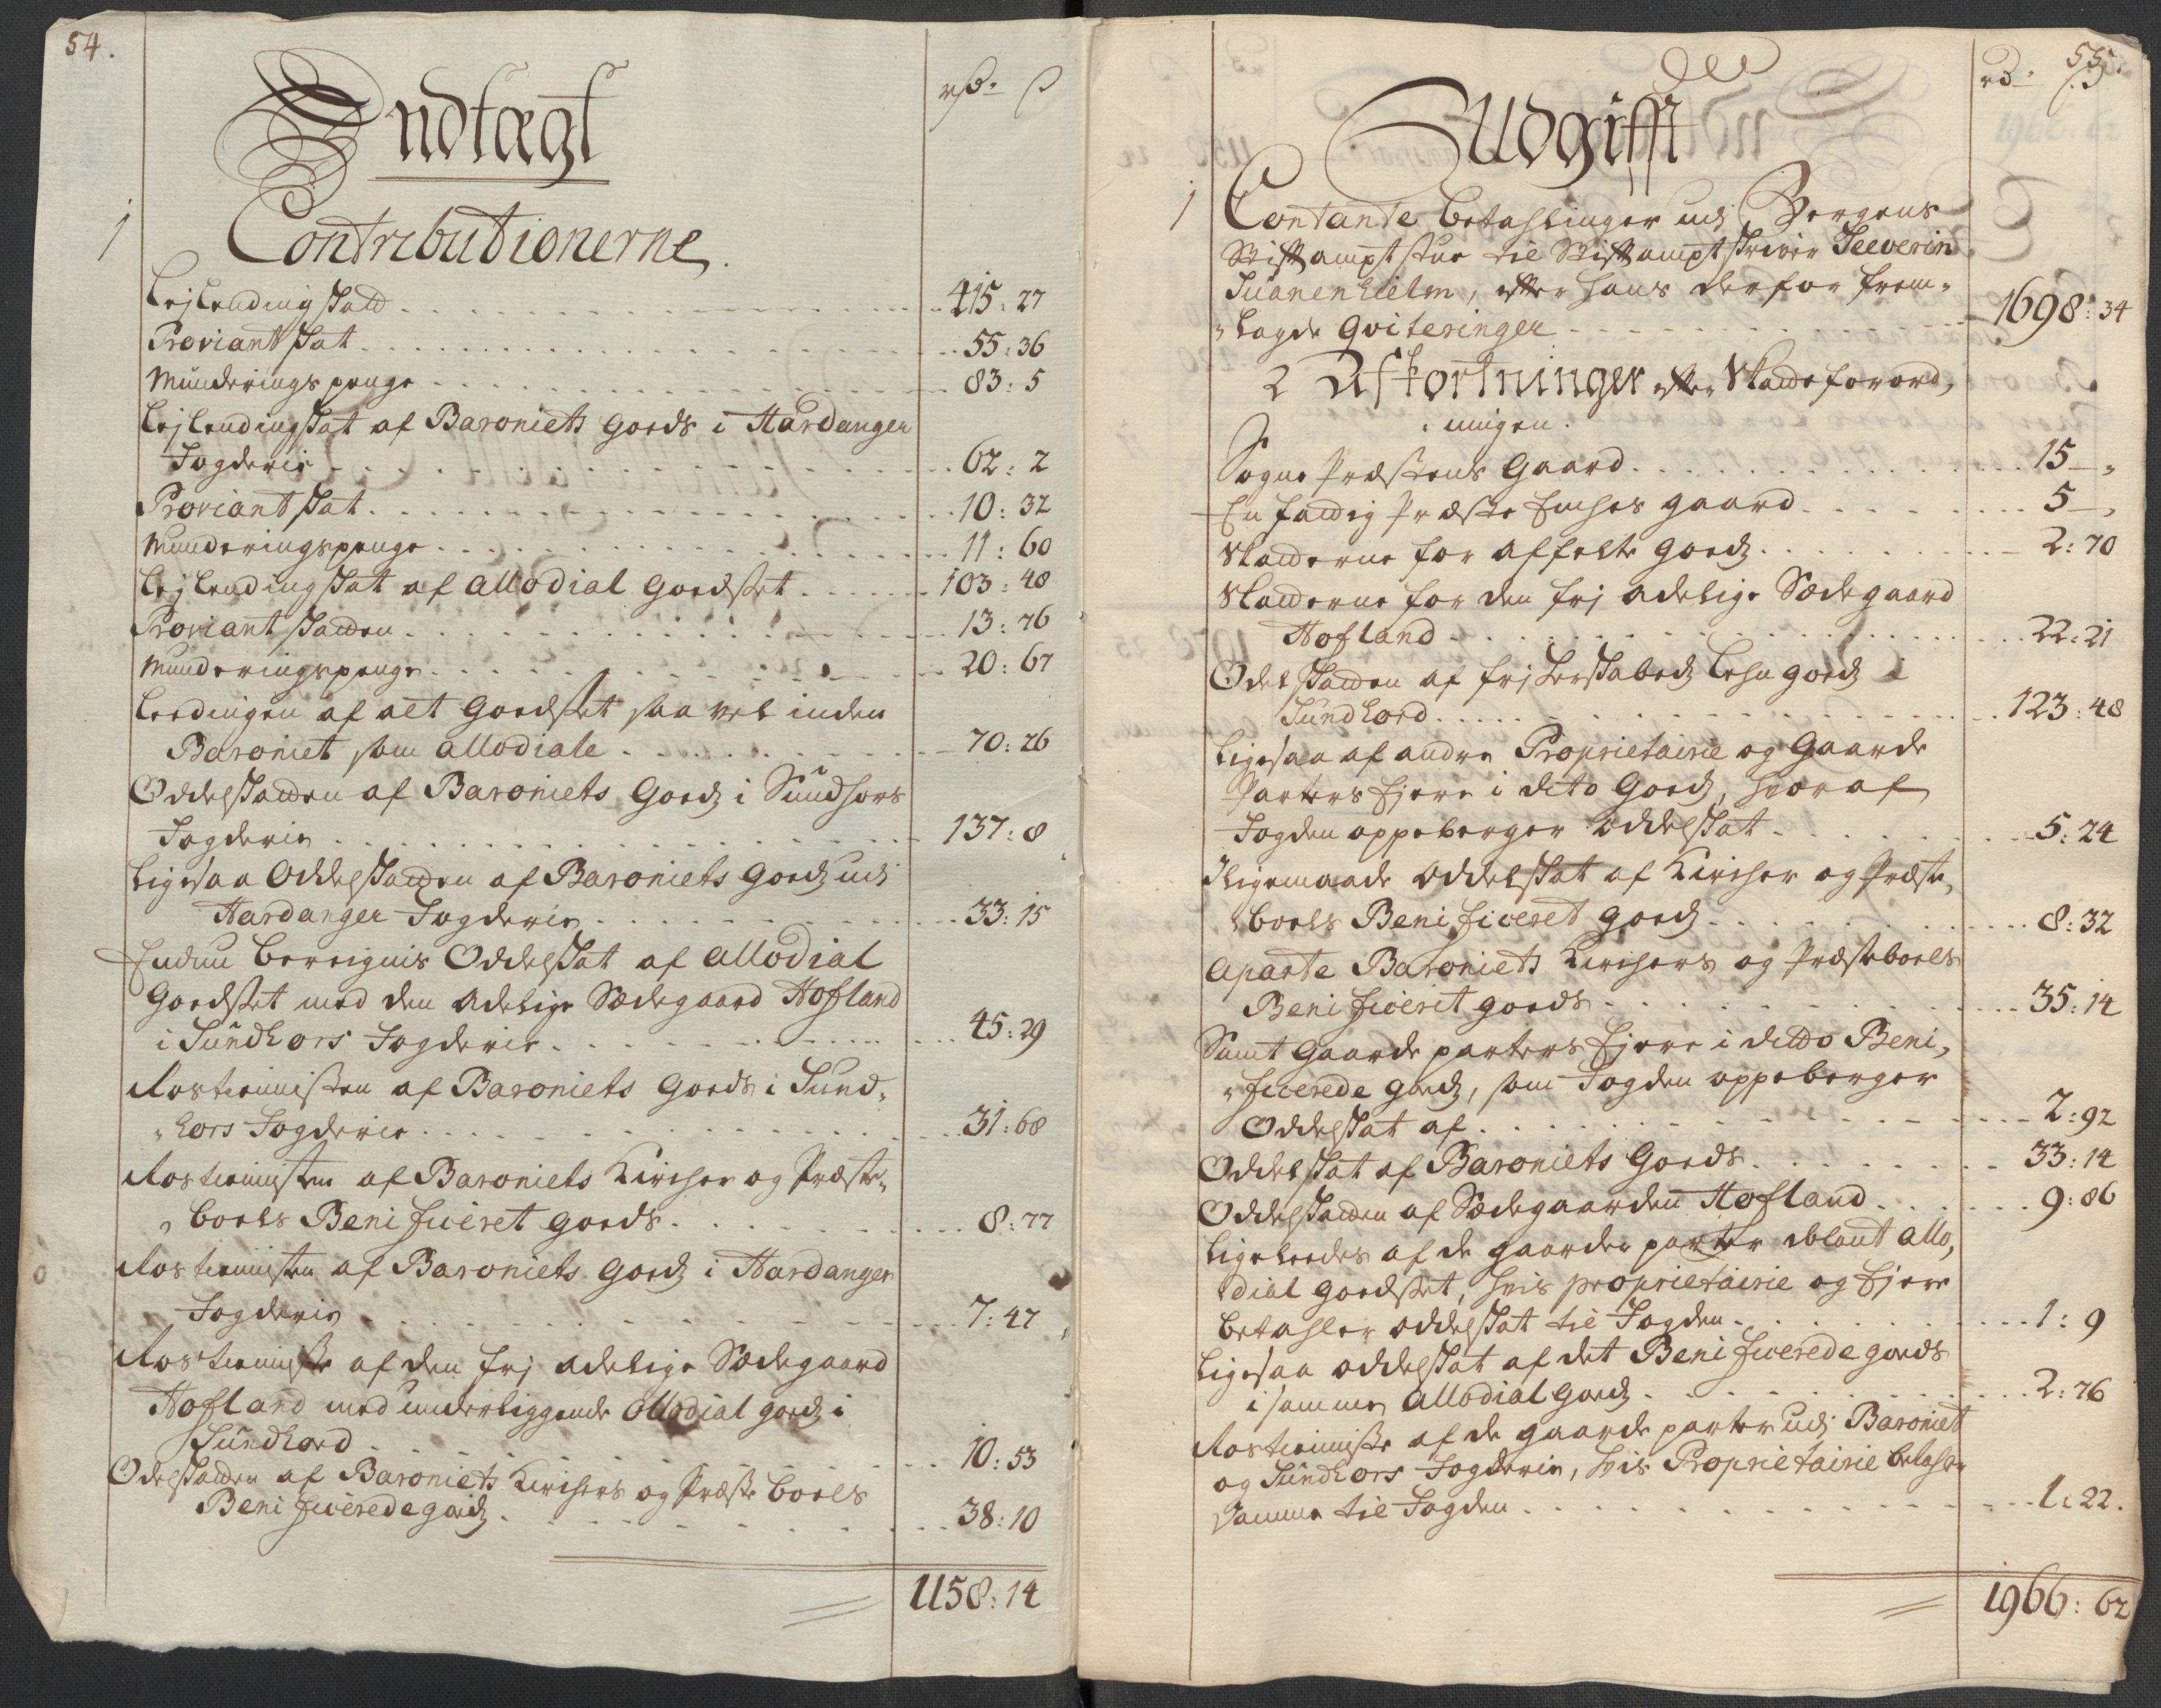 54.
Indtægt
rdr. s
1
Contributionerne
Leylending skatt 415: 27
Proviant skat 55: 36
Munderings penge 83: 5
Leylendingskat af Baroniets Goeds i Hardanger
Fogderie 62: 2
Proviant skat 10: 32
Munderingspenge 11: 60
Leylending skat af Allodial Goedset 103: 48
Proviant skatten 13: 76
Munderingspenge 20: 67
Leedingen af alt Goedset saa vel inden
Baroniet som allodiale 70: 26
Oddelskatten af Baroniets Goeds i Sundhors
Fogderie 137: 8
Ligesaa Oddelskatten af Baroniets Goeds udi
Hardanger Fogderie 33: 15
Endnu bereignis Oddelskat af Allodial
Goedset med den Adelige Sædegaard Hofland
i Sundhors Fogderie 45: 29
Rostienisten af Baroniets Goeds i Sund-
hors Fogderie 31: 68
Rostienisten af Baroniets Kircher og Præste-
boels Beneficeret Goeds 8: 77
Rostienisten af Baroniets Goeds i Hardanger
Fogderie 7: 47
Rostieniste af den frj Adelige Sædegaard
Hofland med underliggende Allodial goeds i
Sundhord 10: 53
Odelskatten af Baroniets Kirchers og Præste boels
Beneficerede goeds 38: 10
1158: 14
55.
Udgifft
rd. s
1
Contante betahlinger udj Bergens
Stiftamptstue til Stiftamptskriver Seeverin
Suanenhielm, efter hans derfor frem-
lagde Qviteringer 1698: 34
2 Afkortninger efter Skatteforord,
ningen.
Sogne Præstens Gaard 15 "
En fattig Præste Enches gaard 5 "
Skatterne for affelte Goeds 2: 70
Skatterne for den frj Adelige Sædegaard
Hofland 22: 21
Odelskatten af frj herskabeds Lehn goeds i
Sundhord 123: 48
Ligesaa af andre Proprietairie og Gaarde
Parters Ejere i dito Goeds, hvoraf
Fogden oppeberger Oddelskat 5: 24
Iligemaade Oddelskat af Kircher og Præste,
boels Beneficeret goeds 8: 32
Aparte Baroniets Kirchers og Præsteboels
Beneficeret goeds 35: 14
Samt Gaarde parters Ejere i ditto Beni,
ficerede goeds, som Fogden oppeberger
Oddelskat af 2: 92
Oddelskat af Baroniets Goeds 33: 14
Oddelskatten af Sædegaarden Hofland 9: 86
Ligeleedes af de gaarder parter iblant Allo,
dial Goedset, hvis proprietairie og Ejere
betahler oddelskat til Fogden 1: 9
Ligesaa oddelskat af det Beneficerede goeds
i samme Allodial Goeds 2: 76
Rostieniste af de gaarde parter udj Baroniet
og Sundhors Fogderie, hvis Proprietairie betahler
Samme til Fogden 1: 22.
1966: 62